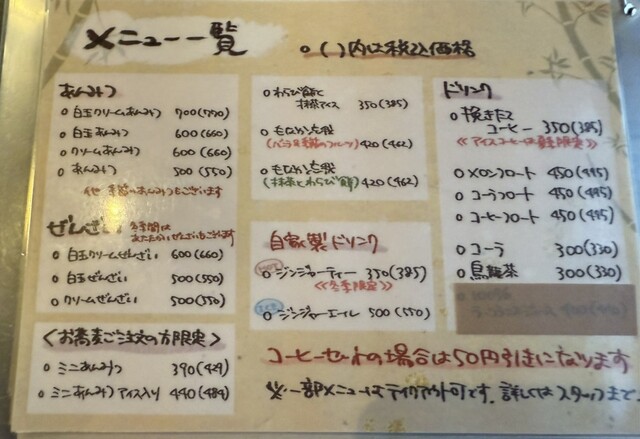 メニュー一覧
○( )内は税込価格
あんみつ
○ 白玉クリームあんみつ 700(770)
○ 白玉あんみつ 600(660)
○ クリームあんみつ 600(660)
○ あんみつ 500(550)
他 季節のあんみつもございます
ぜんざい 冬季間は
あたたかいぜんざいもございます
○ 白玉クリームぜんざい 600(660)
○ 白玉ぜんざい 500(550)
○ クリームぜんざい 500(550)
<お蕎麦ご注文の方限定>
○ ミニあんみつ 390(429)
○ ミニあんみつアイス入り 440(484)
○ わらび餅と
抹茶アイス 350(385)
○ もなか
(バニラ 季節のフルーツ) 420(462)
○ もなか
(抹茶とわらび餅) 420(462)
自家製ドリンク
○ ジンジャーティー 350(385)
≪冬季限定≫
○ ジンジャーエール 500(550)
ドリンク
○ 挽きたて
コーヒー 350(385)
≪アイスコーヒーは夏季限定≫
○ メロンフロート 450(495)
○ コーラフロート 450(495)
○ コーヒーフロート 450(495)
○ コーラ 300(330)
○ 烏龍茶 300(330)
コーヒーセットの場合は50円引きになります
※一部メニューはテイクアウト可です。詳しくはスタッフまで。